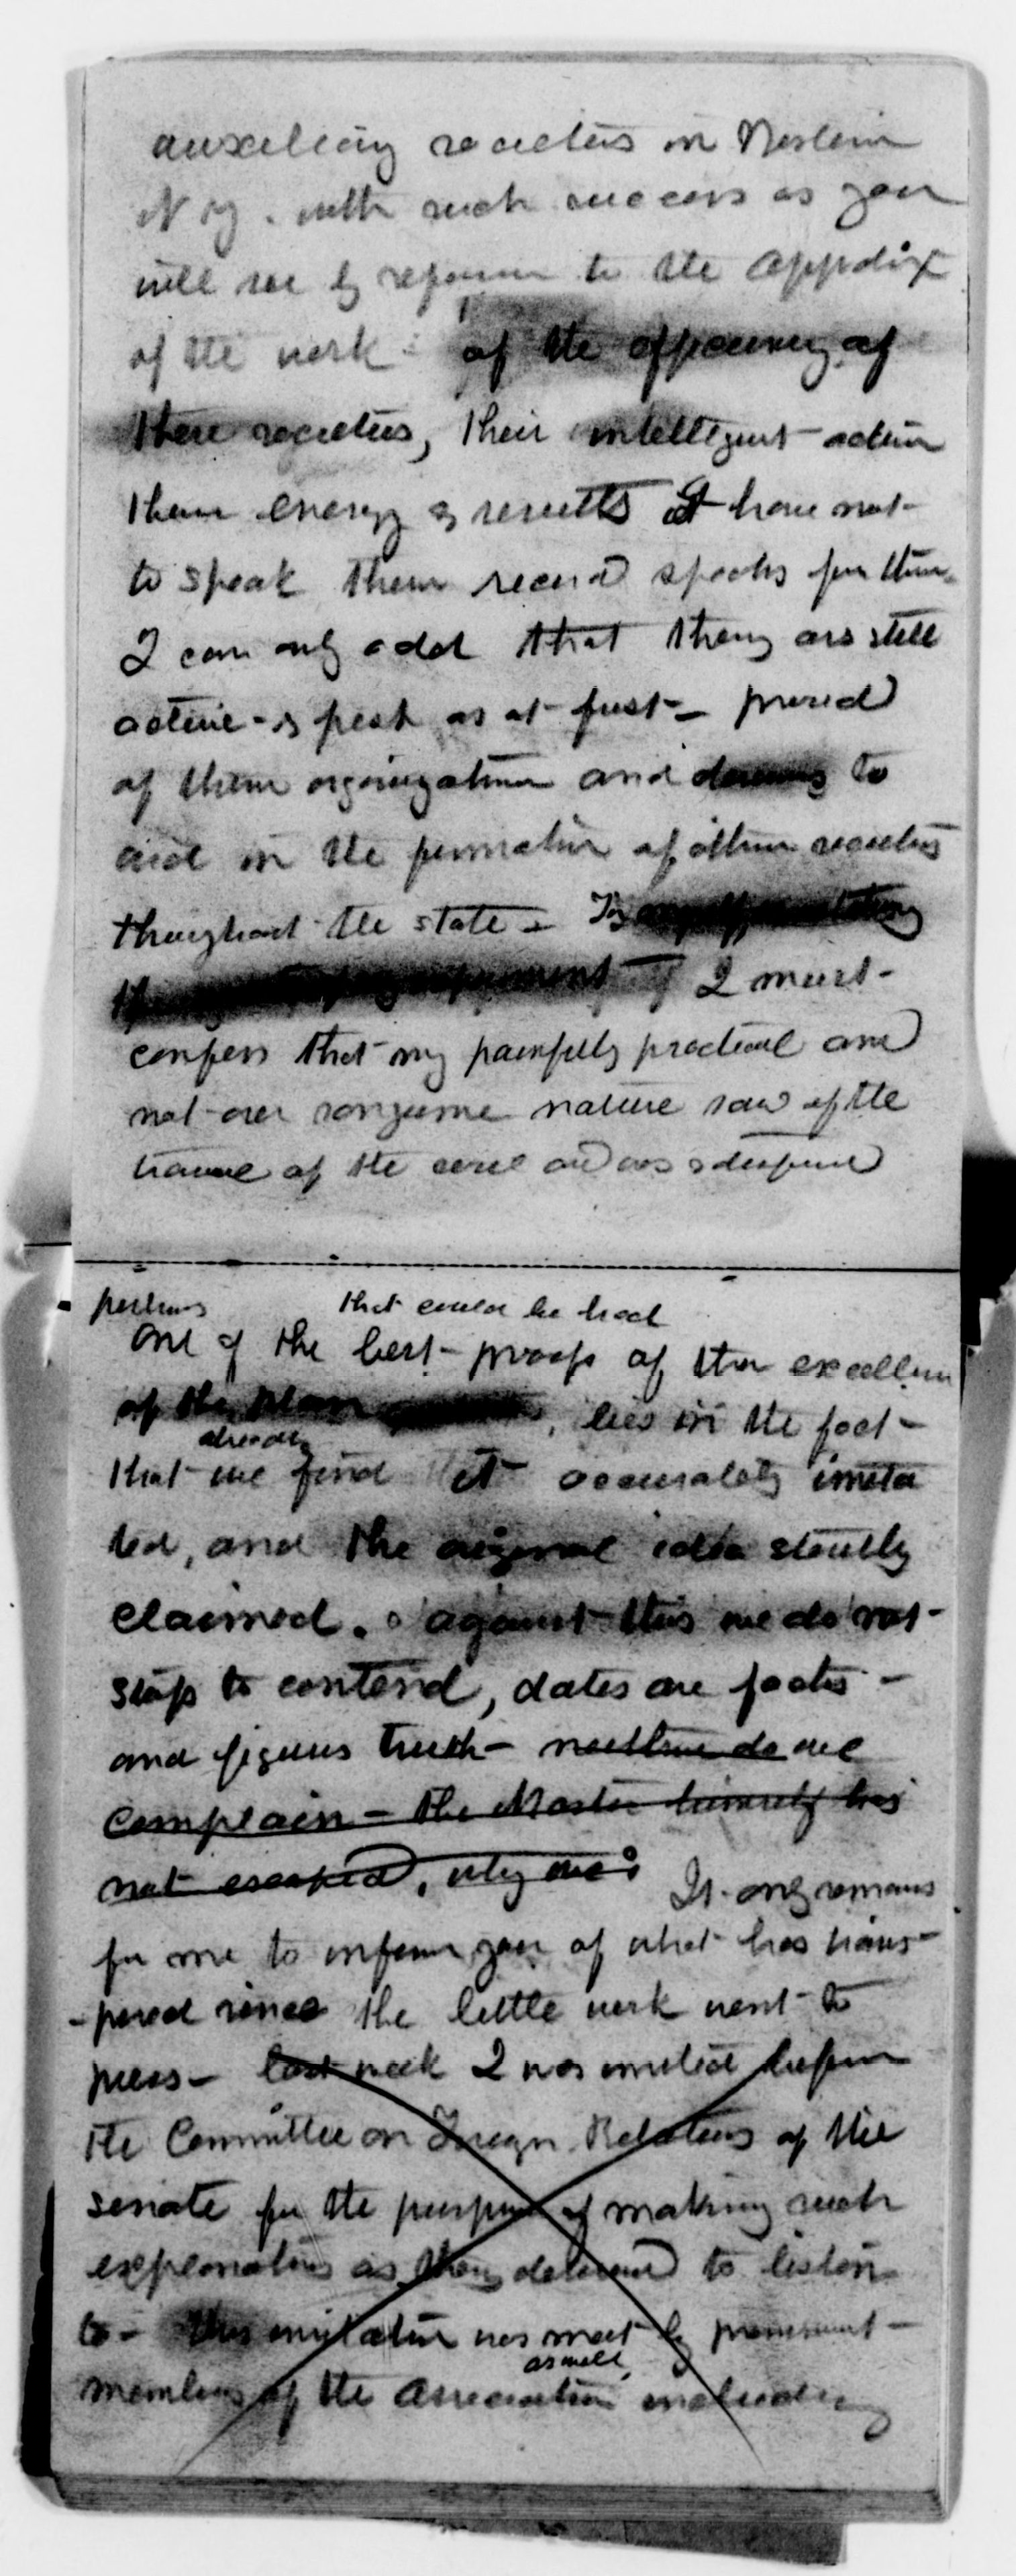 auxiliary societies in Western
N Y. with such success as you
will see by reference to the Appendix
of the work - of the efficiency of
these societies, their intelligent action
their energy & results I have not
to speak their record speaks for them
I can only add that they are still
active - & fresh as at first - proud
of their organization and desiring to
aid in the formation of other societies
throughout the state - By
I must
confess that my painfully practical and
not over sanguine nature saw of the
of the and was
perhaps that could be had
One of the best - proofs of the excellence
of the plan , lies in the fact -
already
that we find it accurately imita
ted, and the original idea stoutly
claimed. against this we do not
stop to contend, dates are facts -
and figures truth - neither do we
complain - the Master himself has
not escaped, why we?
It only remains
for me to inform you of what has trans
-pired since the little work went to
press - last week I was invited before
the Committee on Foreign Relations of the
senate for the purpose of making such
explanations as they desired to listen
to - this invitation was met by prominent -
as well
members of the Association including